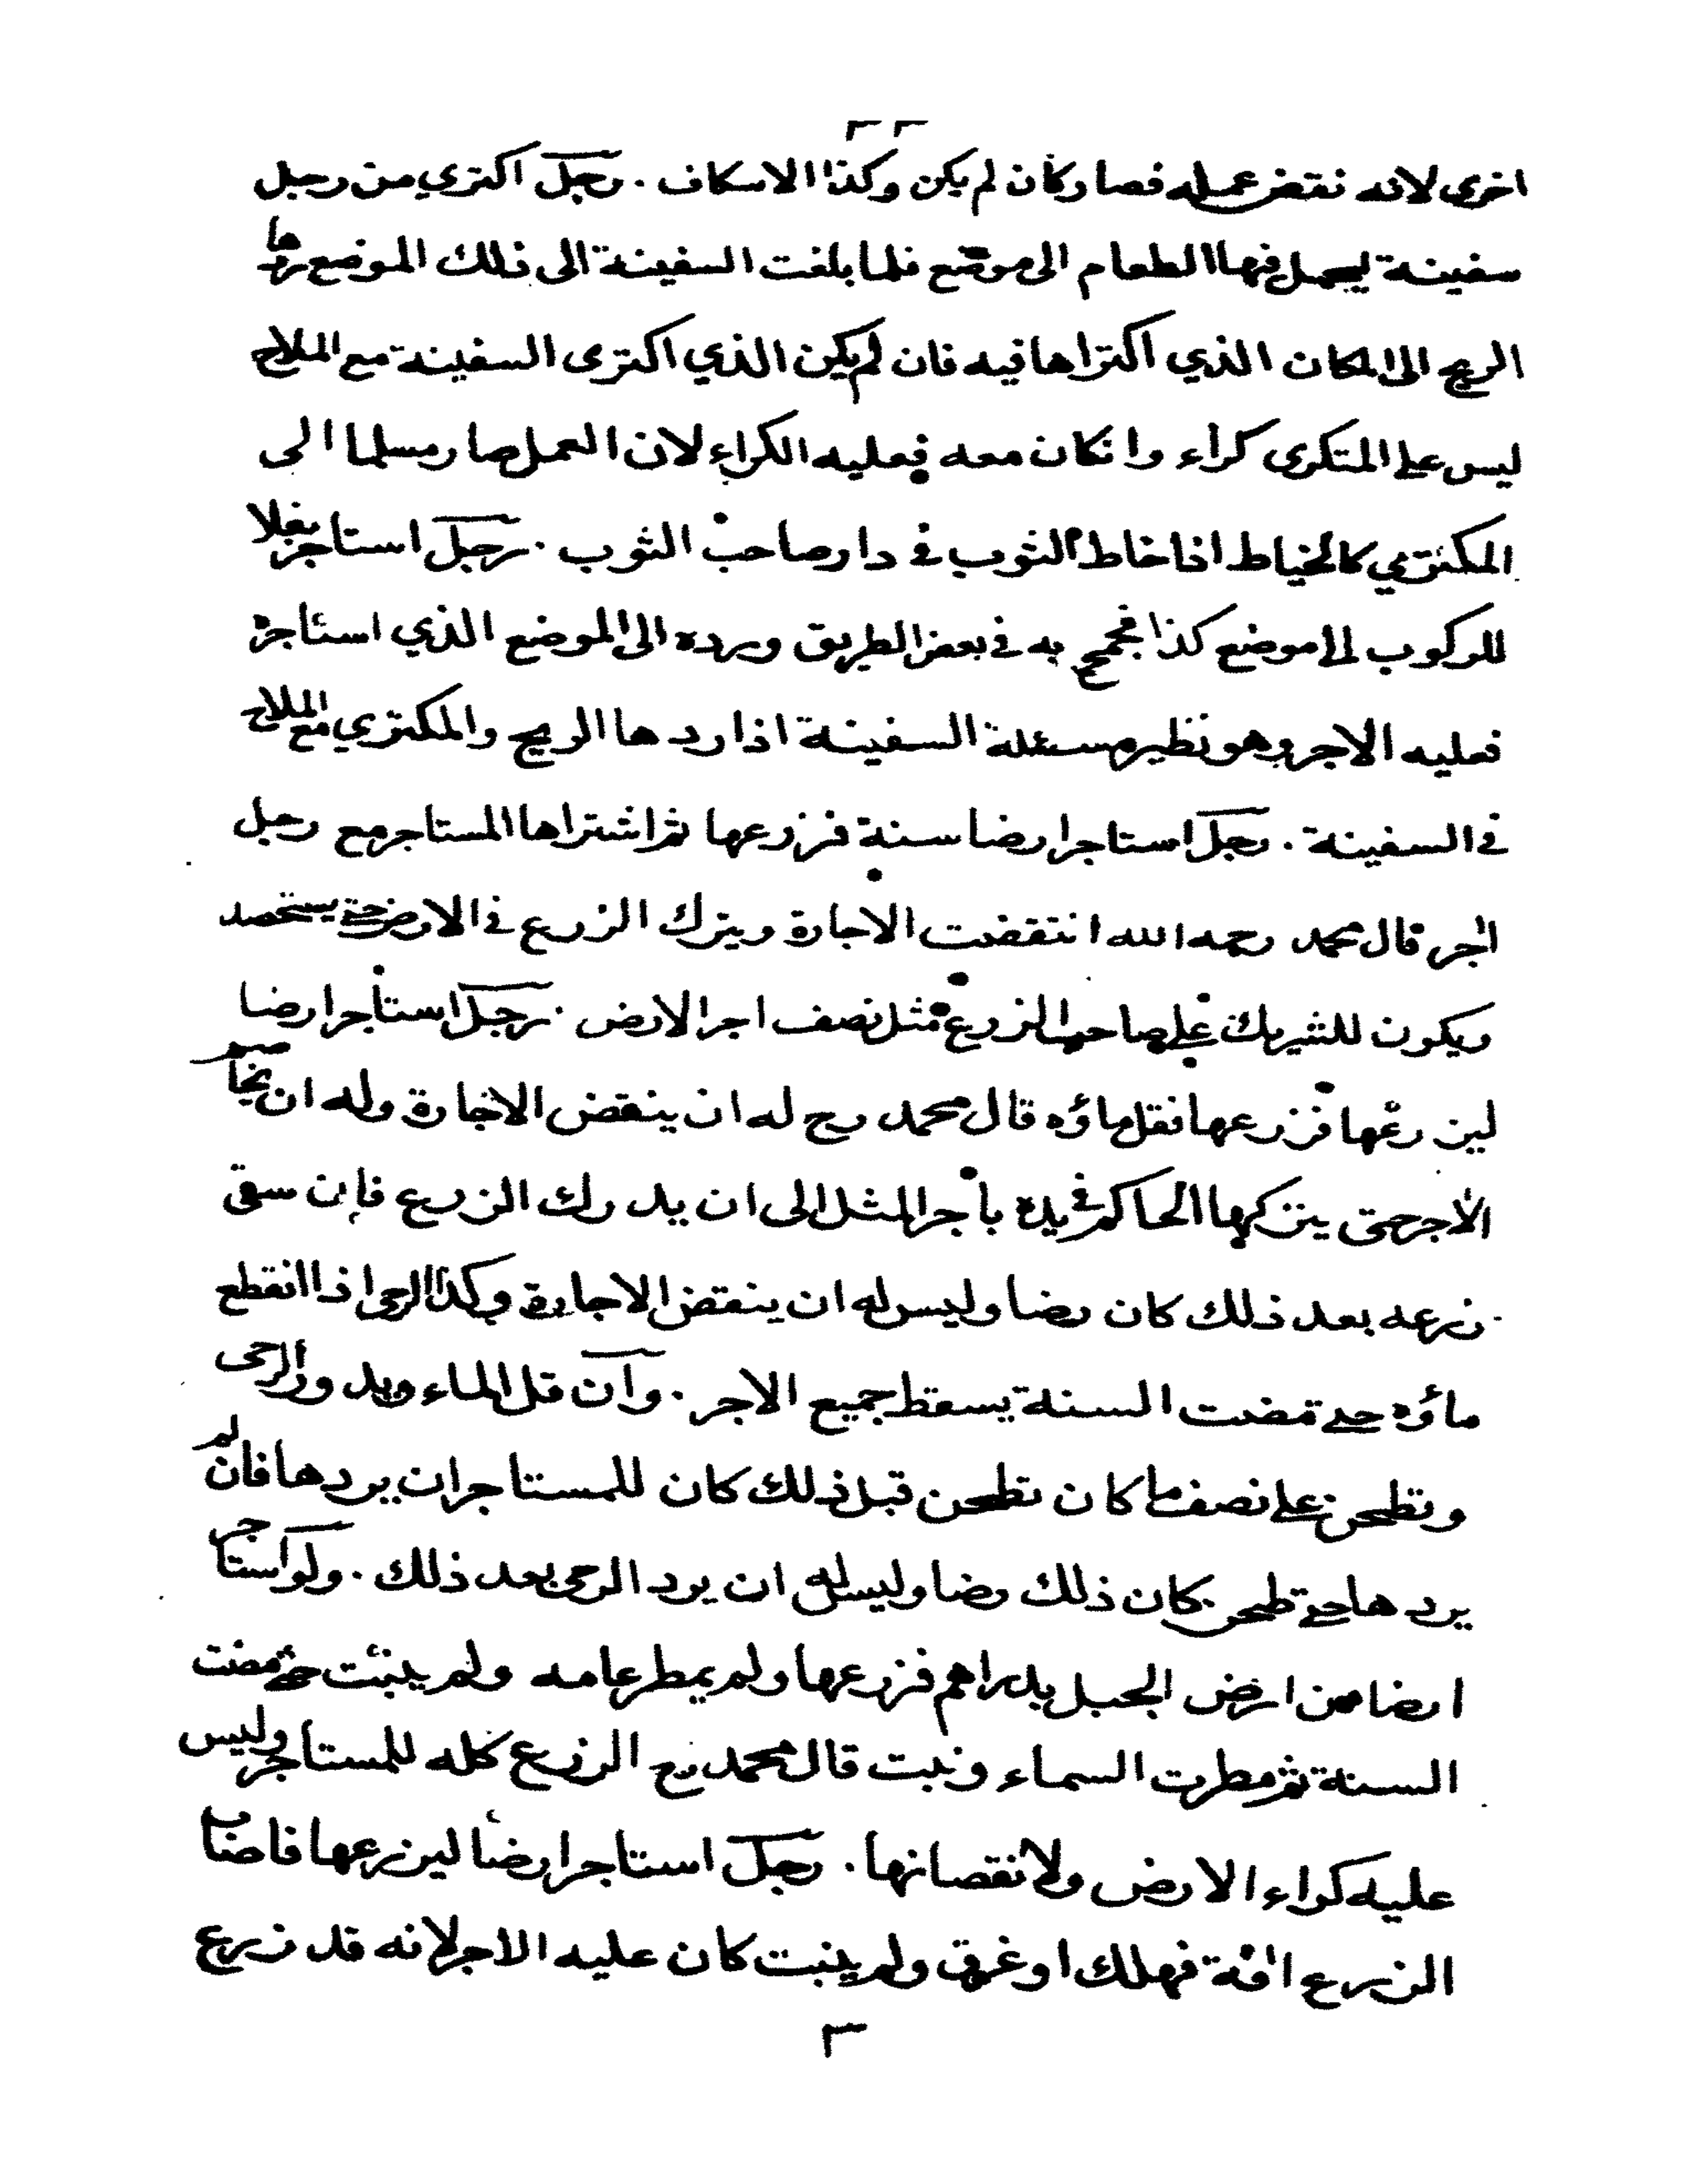 ٢٢
اخرى لانه نقض عمله فصار كان لم يكن وكذا الاسكاف . رجل اكتري من رجل
سفينة ليحمل فيها الطعام الى موضع فلما بلغت السفينة الى ذلك الموضع ردها
الريح الى المكان الذي اكتراها فيه فان لم يكن الذي اكترى السفينة مع الملاح
ليس على المتكرى كراء وان كان معه فعليه الكراء لان العمل صار مسلما الى
المكترى كالخياط اذا خاط الثوب في دار صاحب الثوب . رجل استاجر بغلا
للركوب الى موضع كذا فجمح به في بعض الطريق ورده الى الموضع الذي استاجره
فعليه الاجر وهو نظير مسئلة السفينة اذا ردها الريح والمكتري مع الملاح
في السفينة . رجل استاجر ارضا سنة فزرعها ثم اشتراها المستاجر مع رجل
اخر قال محمد رحمه الله انتقضت الاجارة ويترك الزرع في الارض حتى يستحصد
ويكون للشريك على صاحب الزرع مثل نصف اجر الارض . رجل استاجر ارضا
ليزرعها فزرعها فقل ماؤه قال محمد رح له ان ينقض الاجارة وله ان يخاصم
الاجر حتى يتركها الحاكم في يده باجر المثل الى ان يدرك الزرع فإن سقى
زرعه بعد ذلك كان رضا وليس له ان ينقض الاجارة وكذا الرحى اذا انقطع
ماؤه حتى مضت السنة يسقط جميع الاجر . وان قل الماء ويدور الرحى
وتطحن على نصف ما كان تطحن قبل ذلك كان للمستاجر ان يردها فان لم
يردها حتى طحن كان ذلك رضا وليس له ان يرد الرحى بعد ذلك . ولو استاجر
ارضا من ارض الجبل بدراهم فزرعها ولم يمطر عامه ولم ينبت حتى مضت
السنة ثم مطرت السماء ونبت قال محمد رح الزرع كله للمستاجر وليس
عليه كراء الارض ولا نقصانها . رجل استاجر ارضا ليزرعها فاصاب
الزرع افة فهلك او غرق ولم ينبت كان عليه الاجر لانه قد زرع
٣